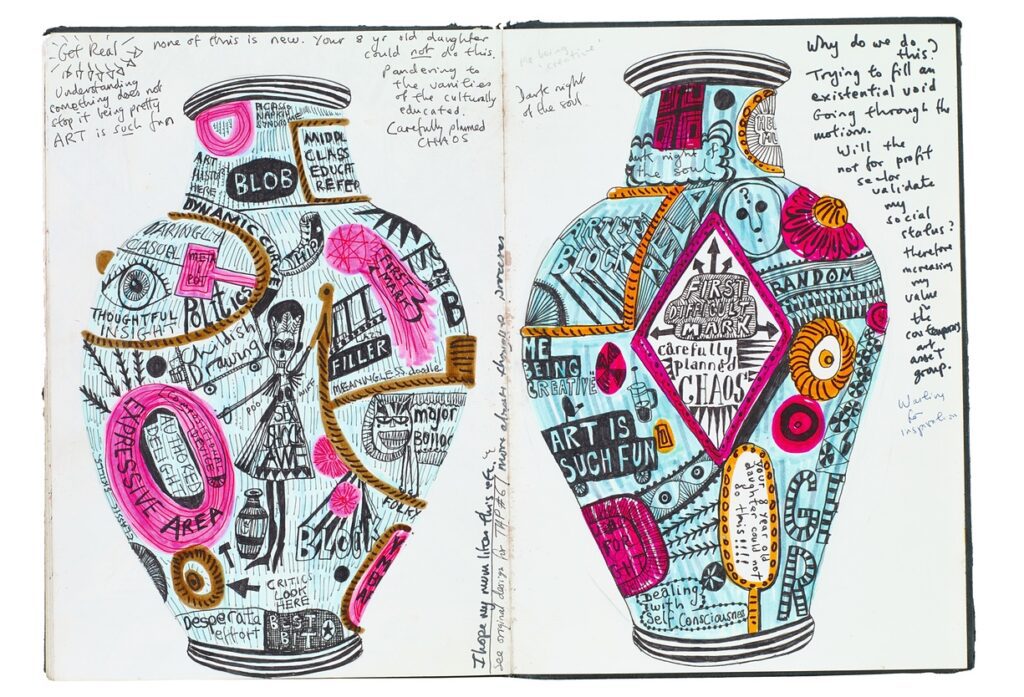 Get Real
none of this is new. Your 8 yr old daughter
could not do this.
Understanding
something does not
stop it being pretty
ART is such fun
Pandering to
the vanities
of the culturally
educated.
Carefully planned
CHAOS
PICASSO
NAPKIN
SYNDROME
ART
HISTORY
HERE
BLOB
MIDDL
CLASS
EDUCAT
REFER
DYNAMIC
DARINGLY
CASUAL
META
POT
THOUGHTFUL
INSIGHT
Politics
FIRST
MARK
B
Childish
Drawing
FILLER
MEANINGLESS doodle
SEX
SHOCK
AWE
major
Bolloc
EXPRESSIVE AREA
COMPOSITIONAL
DEVICE
AUTHORED
DELIGHT
CLASSIC
FOLKY
BLOCK
CRITICS
LOOK
HERE
Desperate
effort
BEST
BIT
I hope my mum likes this one
see original design for TAP #67
me being
creative
Dark night
of the soul
dark night of
the soul
RANDOM
FIRST
DIFFICULT
MARK
carefully
planned
CHAOS
ME
BEING
CREATIVE
ART IS
SUCH FUN
Your 8 year old
daughter could not
do this!!!!!
Dealing
with
Self Consciousness
Why do we do
this?
Trying to fill an
existential void
Going through the
motions.
Will the
not for profit
sector
validate
my
social
status?
therefore
increasing
my
value
in
the
contemporary
art
asset
group.
Waiting
for
inspiration